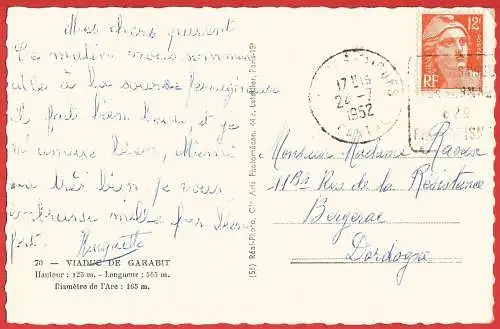 Mes chers parent
Ce matin nous sommes
allé à la source ferrugineuse
il fait bien beau, et je
m'amuse bien, Mémé
va très bien, je vous
embrasse mille fois bien
fort. Huguette
70 — VIADUC DE GARABIT
Hauteur : 123 m. - Longueur : 565 m.
Diamètre de l'Arc : 165 m.
(S) Réal-Photo. Cie Arts Photoméca. 44, r. Letellier, Paris-15e
AIGUES
17 H 15
24-7
1952
CANTAL
12F
RF
Monsieur Madame
11 Bis Rue de la Résistance
Bergerac
Dordogne